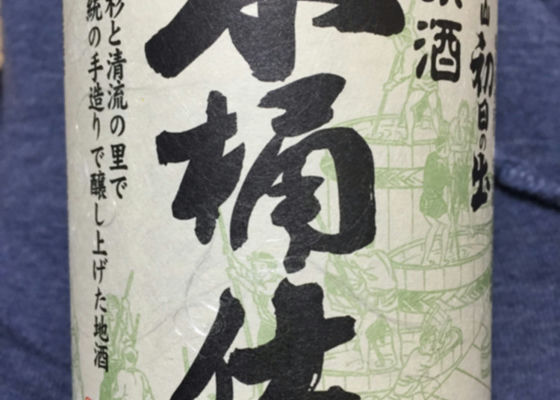 山 初日の出
原酒
木桶仕
杉と清流の里で
伝統の手造りで醸し上げた地酒